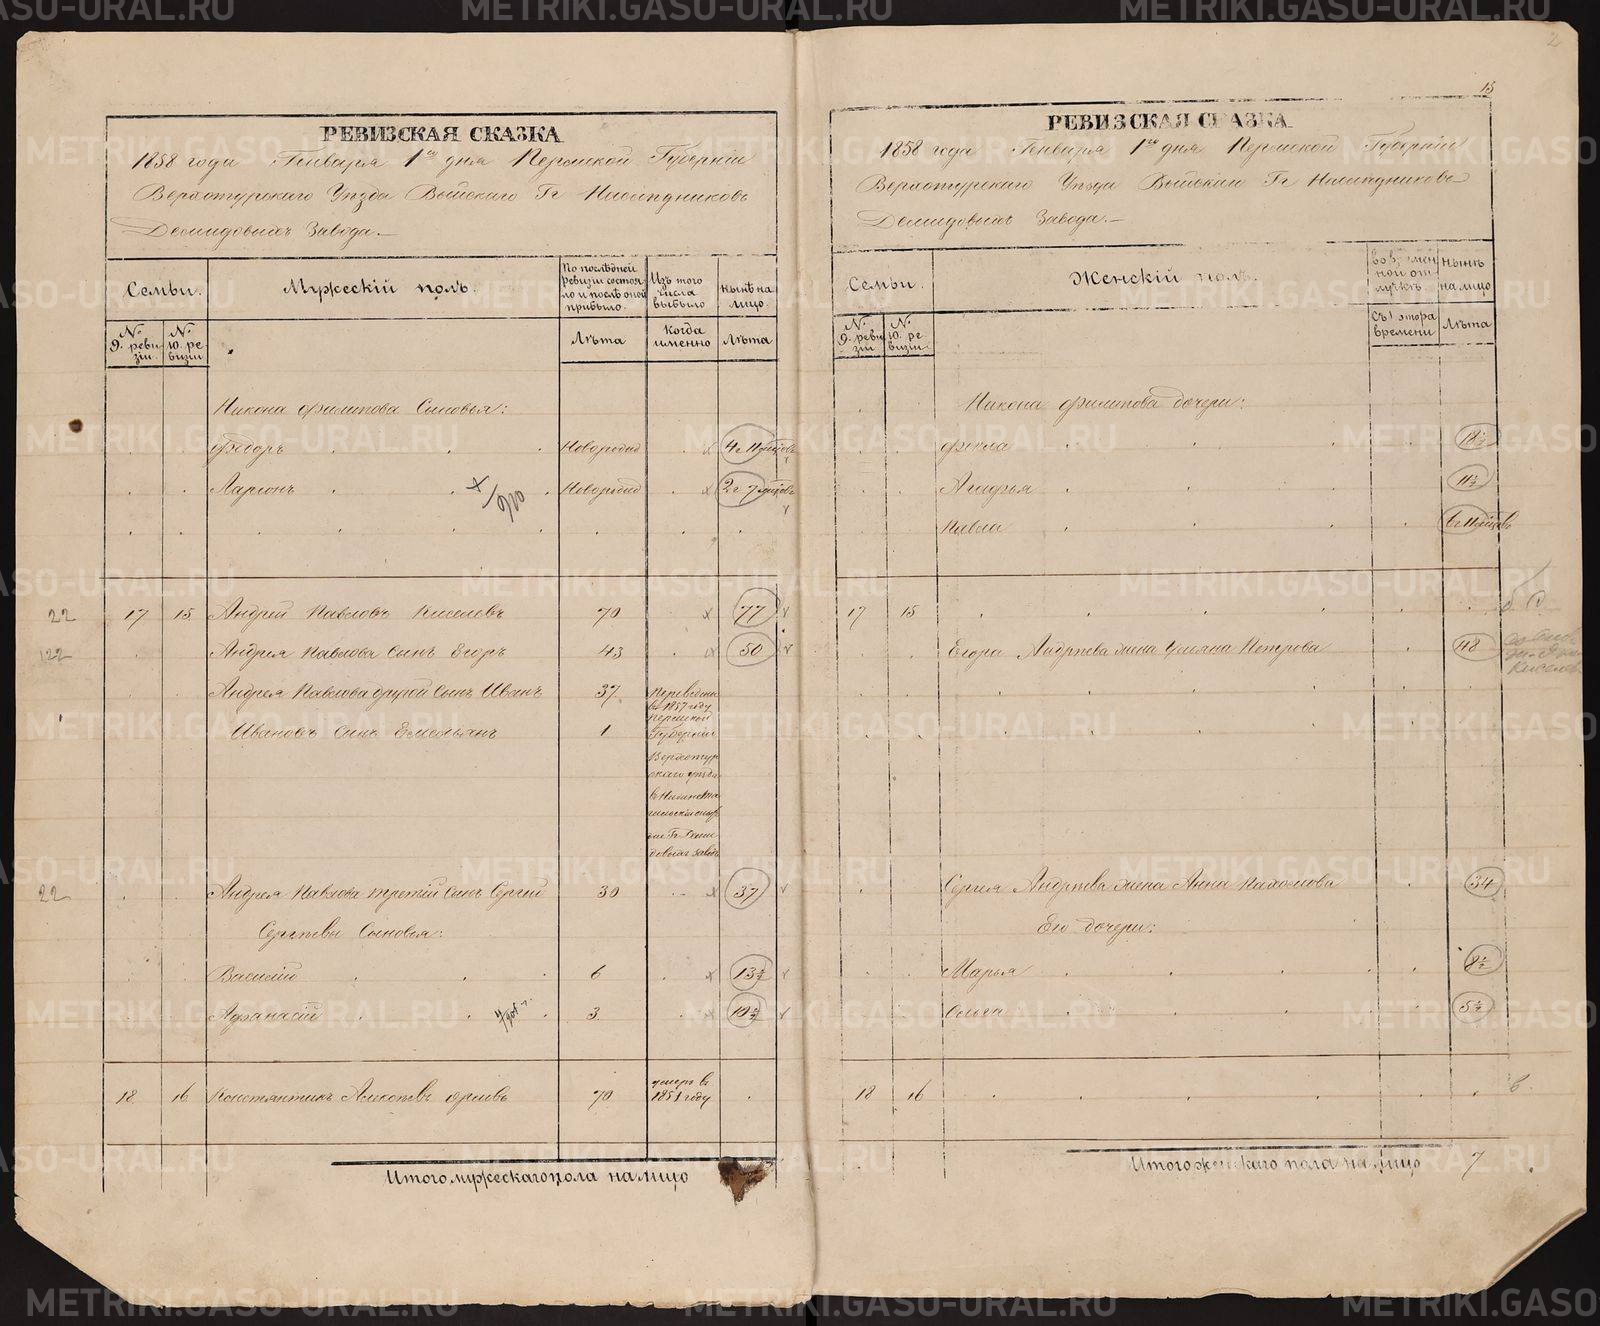 2
13
РЕВИЗСКАЯ СКАЗКА
1858 года Генваря 1го дня Пермской Губерніи
Верхотурскаго Уѣзда Выйскаго Гг Наслѣдниковъ
Демидовыхъ Завода.
Семьи.
Мужескій полъ.
По послѣдней ревизіи состояло и послѣ оной прибыло.
Изъ того числа выбыло
Нынѣ на лицо.
№ 9. ревизіи
№ 10. ревизіи
Лѣта
Когда именно
Лѣта
Никона Филипова Сыновья:
Фёдоръ Новорожд
Ларіонъ Новорожд
22 17 15 Андрей Павловъ Киселевъ 70 77
122 Андрея Павлова Сынъ Егоръ 43 50
Андрея Павлова другой Сынъ Иванъ 37
Ивановъ Сынъ Емельянъ 1
Переведены
въ 1857 году
Пермской
Губерніи
Верхотур
скаго уѣзда
22 Андрея Павлова третій Сынъ Сергей 30 37
Сергѣевы Сыновья:
Василій 6 13½
Афанасій 3 10½
18 16 Константинъ 70 умеръ въ 1851 году
Итого мужескаго пола на лицо
РЕВИЗСКАЯ СКАЗКА
1858 года Генваря 1го дня Пермской Губерніи
Верхотурскаго Уѣзда Выйскаго Гг Наслѣдниковъ
Демидовыхъ Завода.
Семьи.
Женскій полъ.
Во временной отлучкѣ.
Нынѣ на лицо
№ 9. ревизіи
№ 10. ревизіи
Съ котораго времени
Лѣта
Никона Филипова дочери:
Фекла 18½
Агафья 11½
Павла
17 15
Егора Андреева жена Ульяна Петрова 48
Сергея Андреева жена Анна Пахомова 34
Его дочери:
Марья 8½
Ольга 5½
18 16
Итого женскаго пола на лицо 7
METRIKI.GASO-URAL.RU